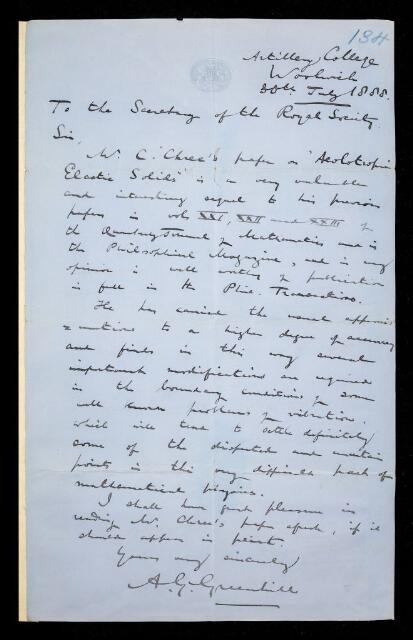 134
Artillery College
Woolwich
30th July 1888.
To the Secretary of the Royal Society.
Sir,
Mr. C. Chree's paper on "Aeolotropic
Elastic Solids" is a very valuable
and interesting sequel to his previous
papers in vols XXI, XXII and XXIII of
the Quarterly Journal of Mathematics and in
the Philosophical Magazine, and in my
opinion is well worthy of publication
in full in the Phil. Transactions.
He has carried the usual approxi-
mations to a higher degree of accuracy
and finds in this way several
important modifications are required
in the boundary conditions for some
well known problems of vibration.
which will tend to settle definitely
some of the disputed and uncertain
points in this very difficult part of
mathematical physics.
I shall have great pleasure in
reading Mr. Chree's paper again, if it
should appear in print.
Yours very sincerely
A. G. Greenhill